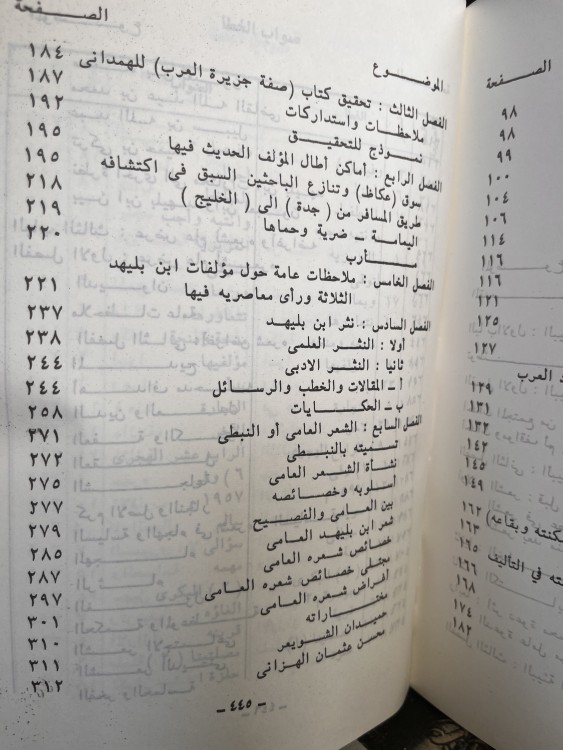 الموضــوع الصــفــحة
الفصل الثالث : تحقيق كتاب (صفة جزيرة العرب) للهمدانى ١٨٤
ملاحظات واستدراكات ١٨٧
نمــوذج للتحقيــق ١٩٢
الفصل الرابع : أماكن أطال المؤلف الحديث فيها ١٩٥
سوق (عكاظ) وتنازع الباحثين السبق فى اكتشافه ١٩٥
طريق المسافر من ( جدة ) الى ( الخليج ) ٢١٨
اليمامة ـ ضرية وحماها ٢١٩
مــــأرب ٢٢٠
الفصل الخامس : ملاحظات عامة حول مؤلفات ابن بليهد
الثلاثة ورأى معاصريه فيها ٢٢١
الفصل السادس : نثر ابن بليهد ٢٣٧
أولا : النثــر العلمى ٢٣٨
ثانيا : النثــر الادبى ٢٤٤
أ ـ المقالات والخطب والرســائل ٢٤٤
ب ـ الحكـــايات ٢٥٨
الفصل السابع : الشعر العامى أو النبطى ٢٧١
تسميته بالنبــطى ٢٧٢
نشأة الشــعر العامى ٢٧٥
أسلوبه وخصائصه ٢٧٧
بين العامى والفصيح ٢٧٩
شعر ابن بليهد العامى ٢٨٥
خصائص شعره العامى ٢٨٧
مجتلى خصائص شعره العامى ٢٩٧
أغراض شعره العامى ٣٠١
مختــاراته ٣١٠
حميــدان الشويعر ٣١١
محسن عثمان الهزانى ٣١٢
ـ ٤٤٥ ـ
الصــفحة
٩٨
٩٨
٩٩
١٠٠
١٠٤
١٠٦
١١٤
١١٦
١١٦
١٢١
١٢٥
١٢٧
د العرب
١٢٩
١٣١
١٣٣
١٤٢
١٤٥
١٤٩
كنته وبقاعه) ١٦٢
١٦٣
ته في التأليف ١٦٥
١٦٦
١٦٨
١٧٤
١٨٢